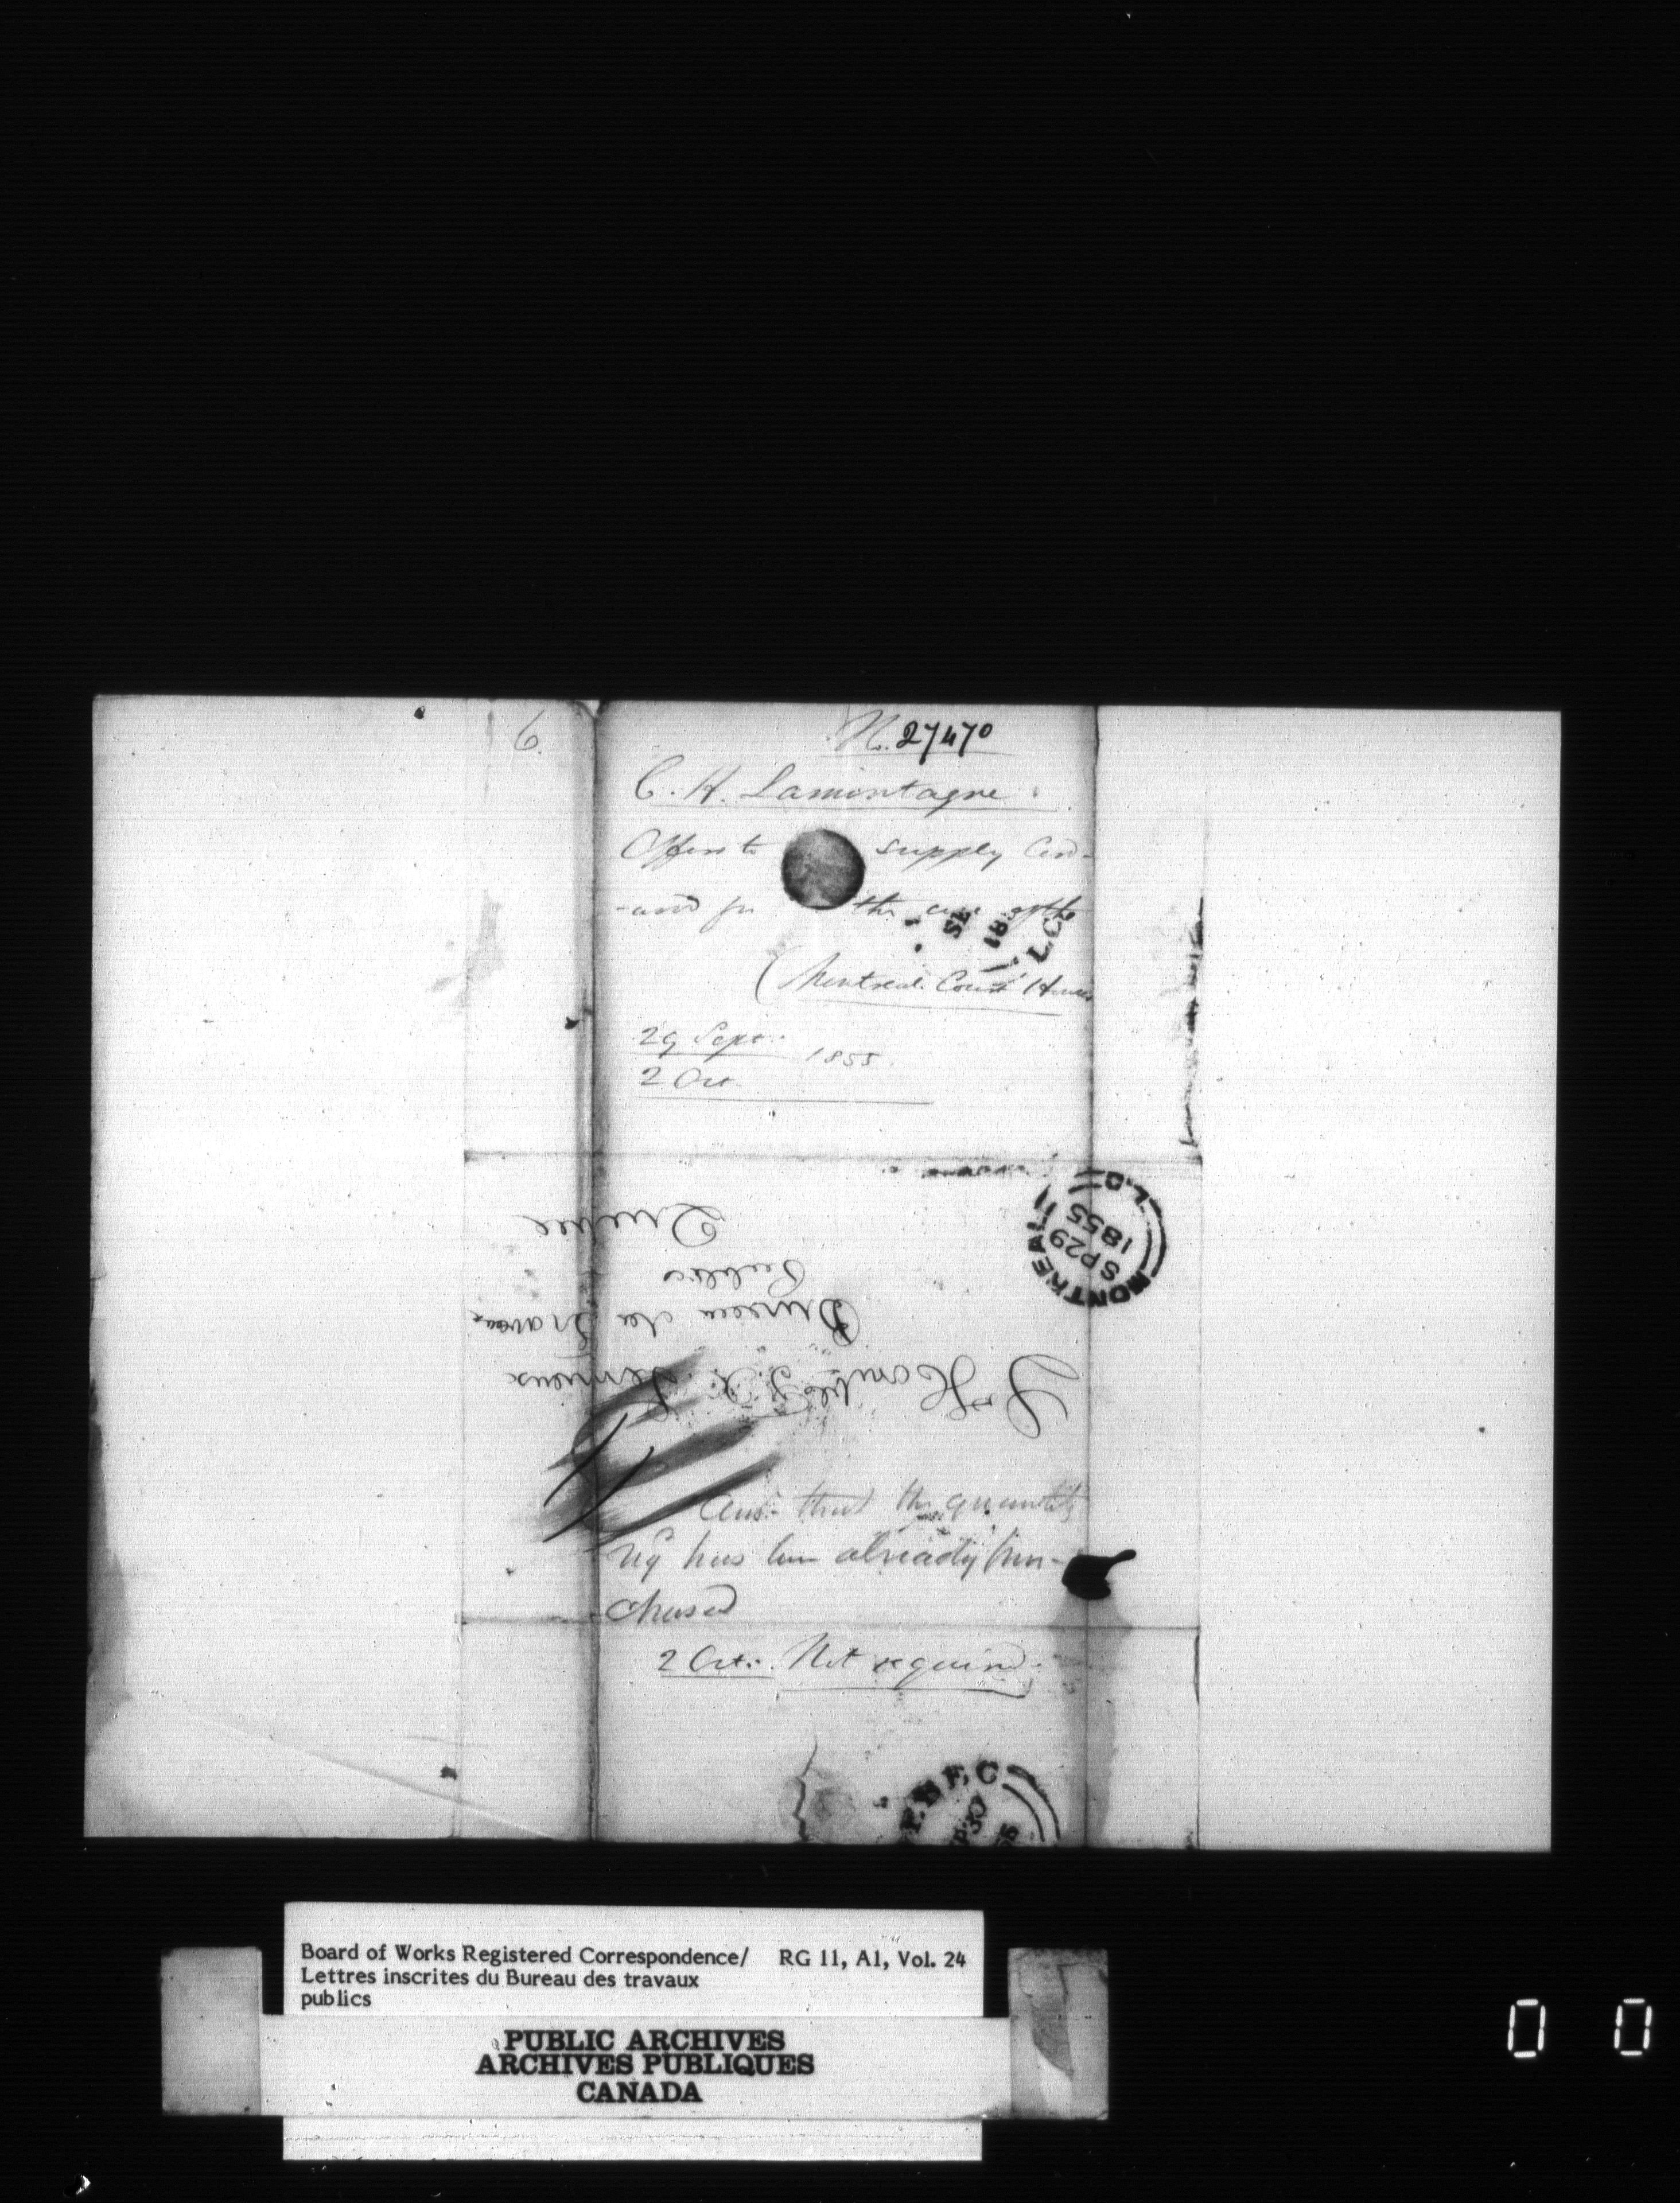 6.
No. 27470
C. H. Lamontagne
Offers to supply Cord-
-wood for the use of the
Montreal Court House
29 Sept.
1855
2 Oct.
MONTREAL L.C.
SP 29
1855
L'Honble F. X. Lemieux
Bureau des Travaux
Publics
Quebec
Ans. that the quantity
rqd has been already pur-
-chased
2 Oct. Not required
EBEC
Board of Works Registered Correspondence/ RG 11, A1, Vol. 24
Lettres inscrites du Bureau des travaux
publics
PUBLIC ARCHIVES
ARCHIVES PUBLIQUES
CANADA
0 0